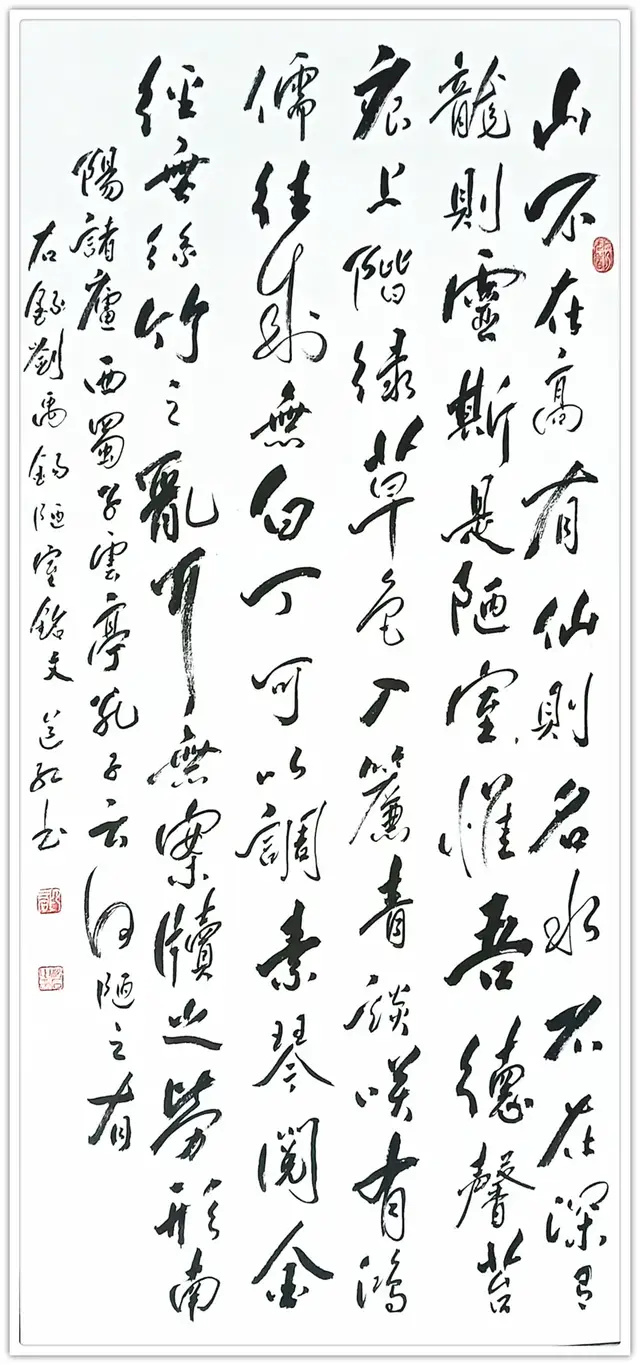 山不在高有仙則名水不在深有
龍則靈斯是陋室惟吾德馨苔
痕上階綠草色入簾青談咲有鴻
儒往來無白丁可以調素琴閱金
經無絲竹之亂耳無案牘之勞形南
陽諸廬西蜀子雲亭孔子云何陋之有
右錄劉禹錫陋室銘文 書